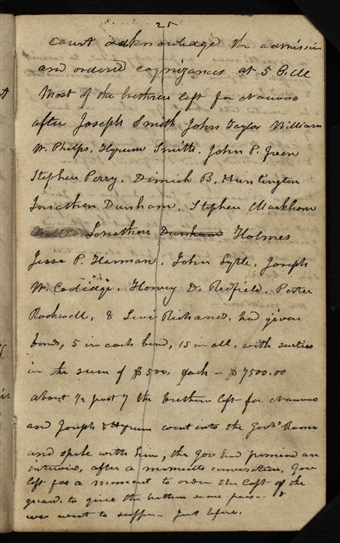 25
court acknowledge the admission
and ordered cognizances at 5 P.M
Most of the brethren left for Nauvoo
after Joseph Smith, John Taylor William
W. Phelps, Hyrum Smith, John P. Green
Stephen Perry, Dimick B, Huntington
Jonathan Dunham, Stephen Markham
Jonathan Dunham Holmes
Jesse P. Harman, John Lytle, Joseph
W. Coolidge, Harvey D, Redfield, Porter
Rockwell, & Levi Richards, had given
bond, 5 in each bond, 15 in all, with sureties
in the sum of $500 each — $7500.00
about 1/2 past 7 the brethren left for Nauvoo
and Joseph & Hyrum went into the Gov's Room
and spoke with him, the Gov had promised an
interview, after a moments conversation, Gov
left for a moment to order the Capt. of the
guard. to give the brethren some pass. &
we went to supper — just before.